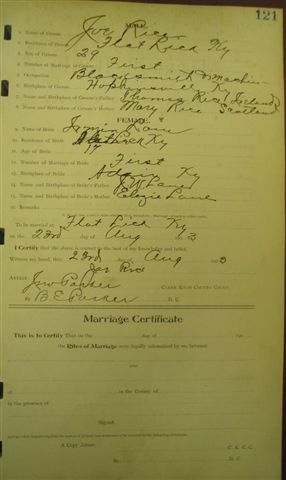 121
MALE.
1. Name of Groom Joe Rice
2. Residence of Groom Flat Lick Ky
3. Age of Groom 29
4. Number of Marriage of Groom First
5. Occupation Blacksmith & Machin
6. Birthplace of Groom Hopkinsville Ky
7. Name and Birthplace of Groom's Father Thomas Rice Ireland
8. Name and Birthplace of Groom's Mother Mary Rice Scotland
FEMALE.
9. Name of Bride Lane
10. Residence of Bride Ky
11. Age of Bride
12. Number of Marriage of Bride First
13. Birthplace of Bride Adair Ky
14. Name and Birthplace of Bride's Father Lane
15. Name and Birthplace of Bride's Mother Lane
16. Remarks
To be married at Flat Lick Ky
on the 23rd day of Aug 3
I Certify that the above is correct to the best of my knowledge and belief.
Witness my hand, this 23rd day of Aug 3
Joe Rice
Attest: Jno Parker
CLERK KNOX COUNTY COURT.
By B E Parker D. C.
Marriage Certificate
This is to Certify That on the day of
the Rites of Marriage were legally solemnized by me between
and
at in the County of
in the presence of
Signed,
A Copy Attest: C. C. C. C.
By D. C.